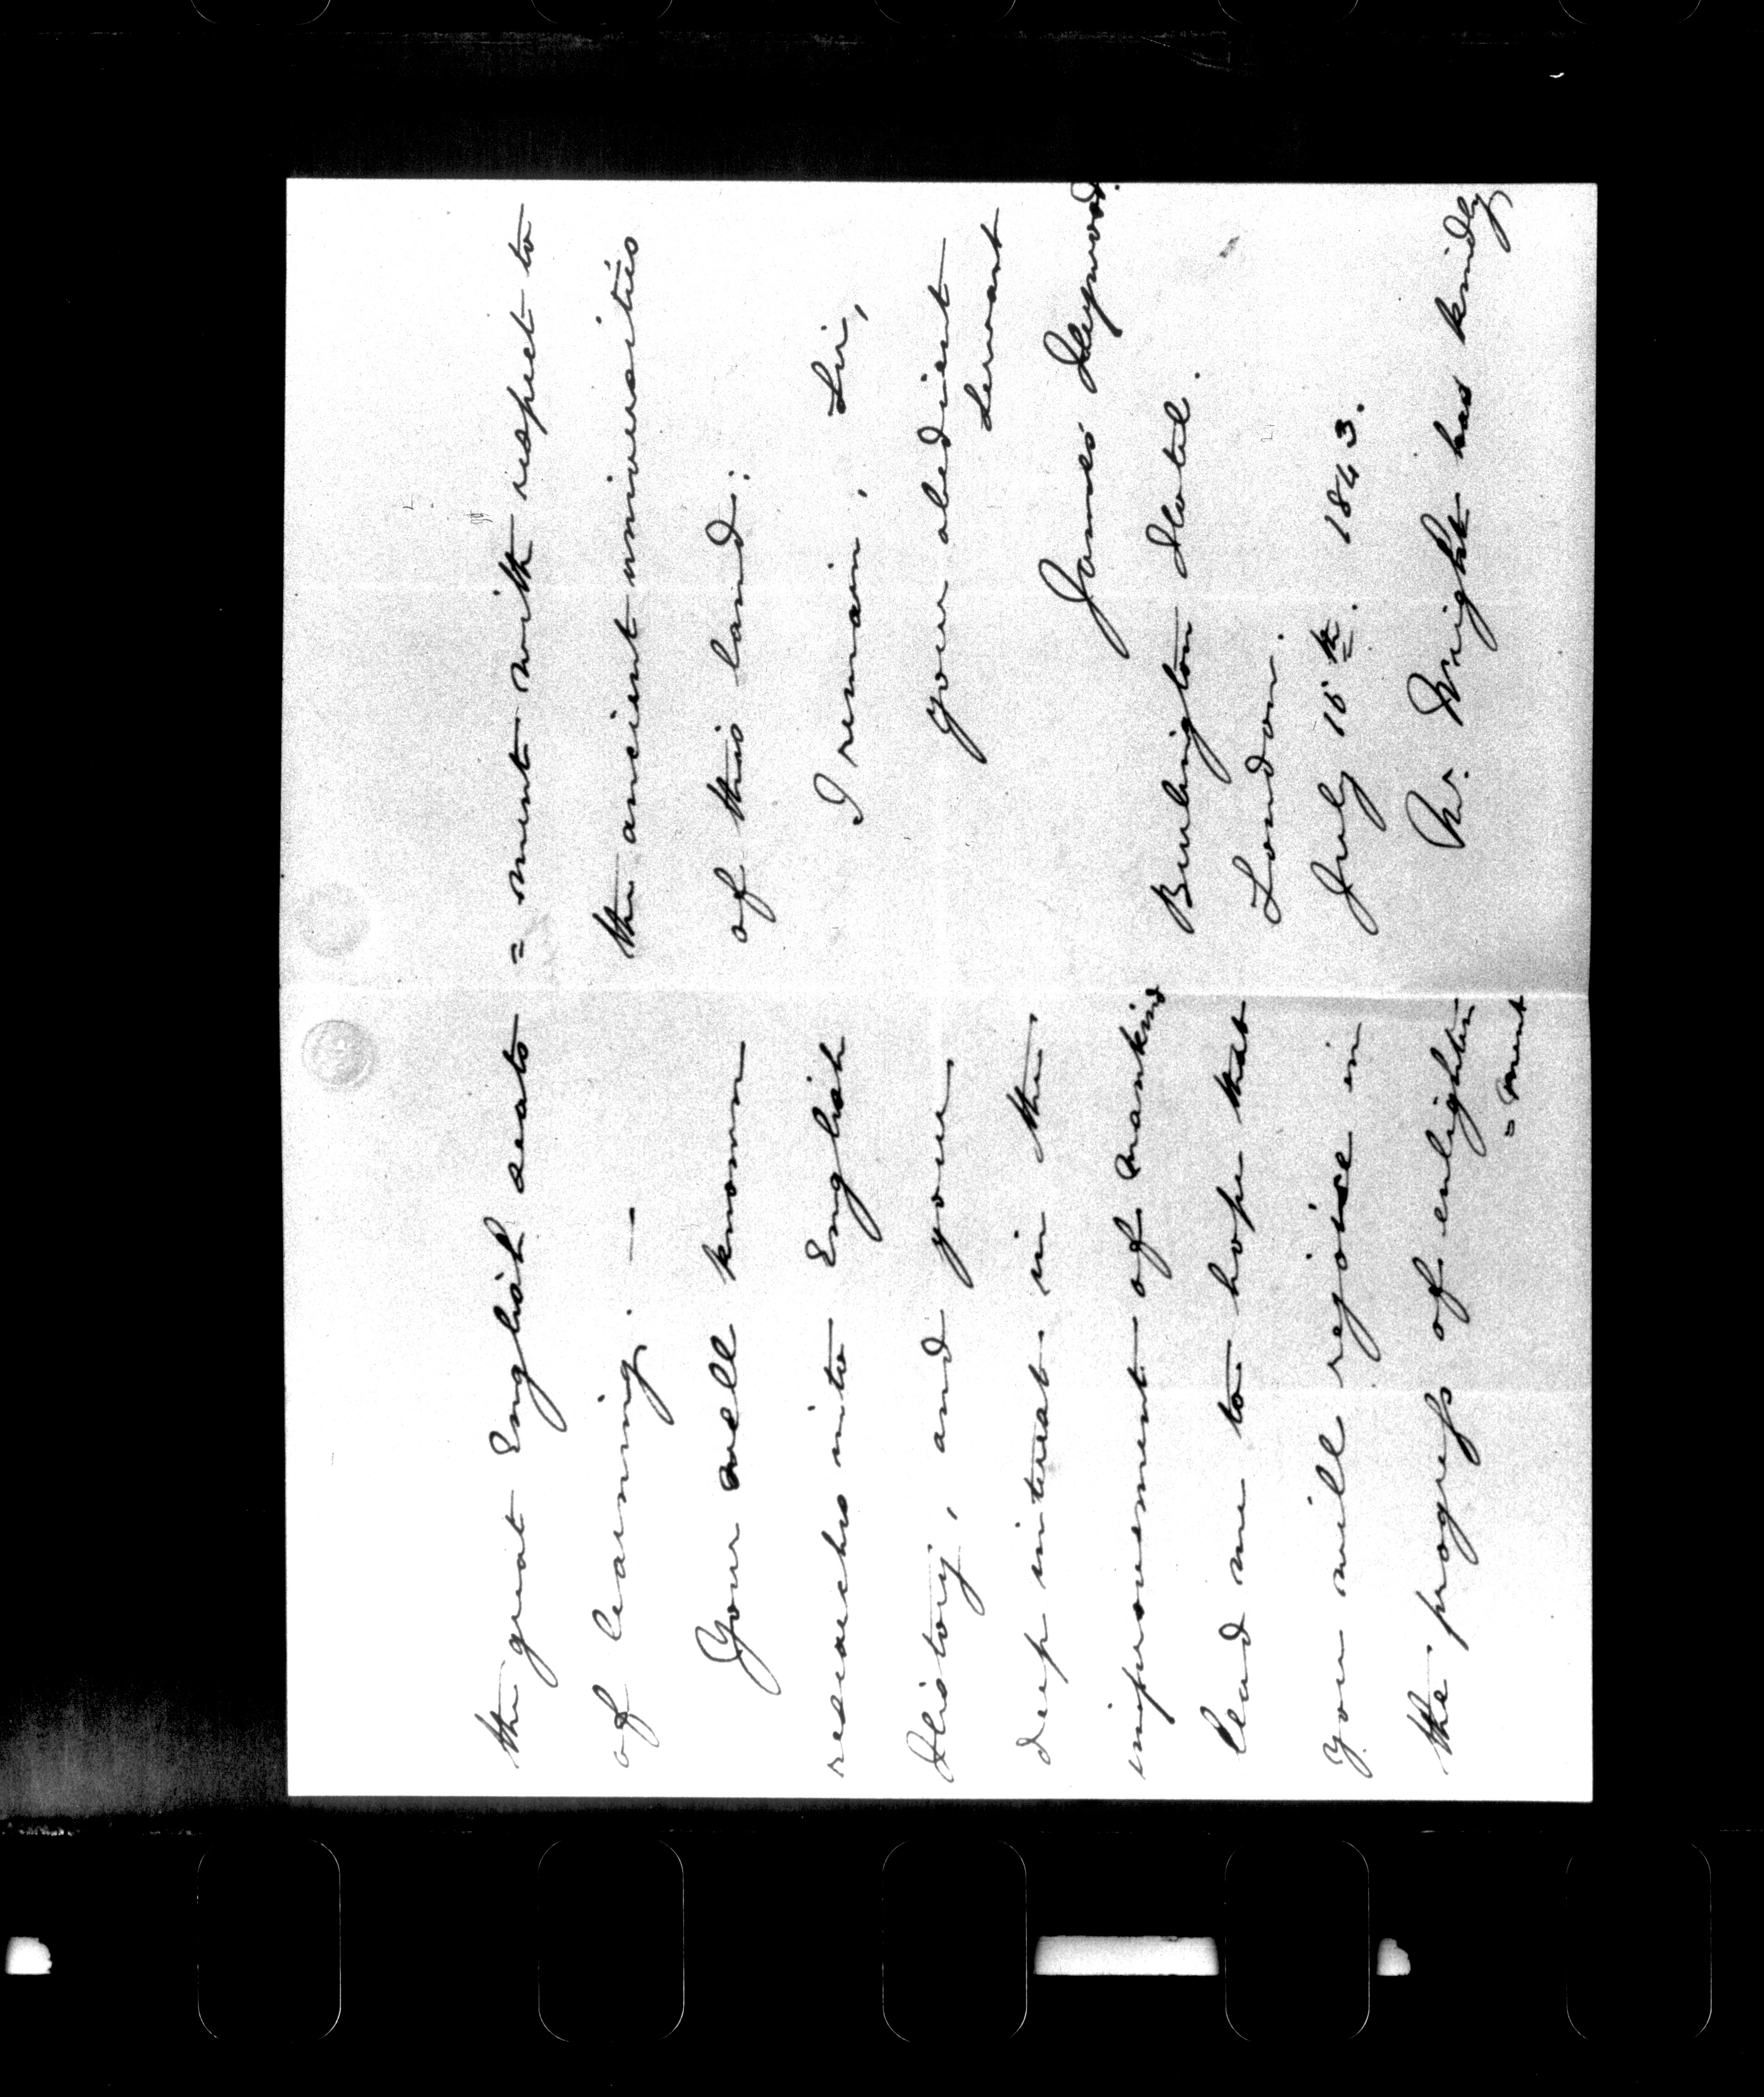 the great English seats
of learning. —
Your well known
researches into English
History, and your
deep interest in the
improvement of mankind
lead me to hope that
you will rejoice in
the progress of enlighten
= ment
= ment with respect to
the ancient universities
of this land.
I remain, Sir,
Your obedient
servant
James Heywood.
Burlington Hotel.
London.
July 15th. 1843.
Mr. Wright has kindly